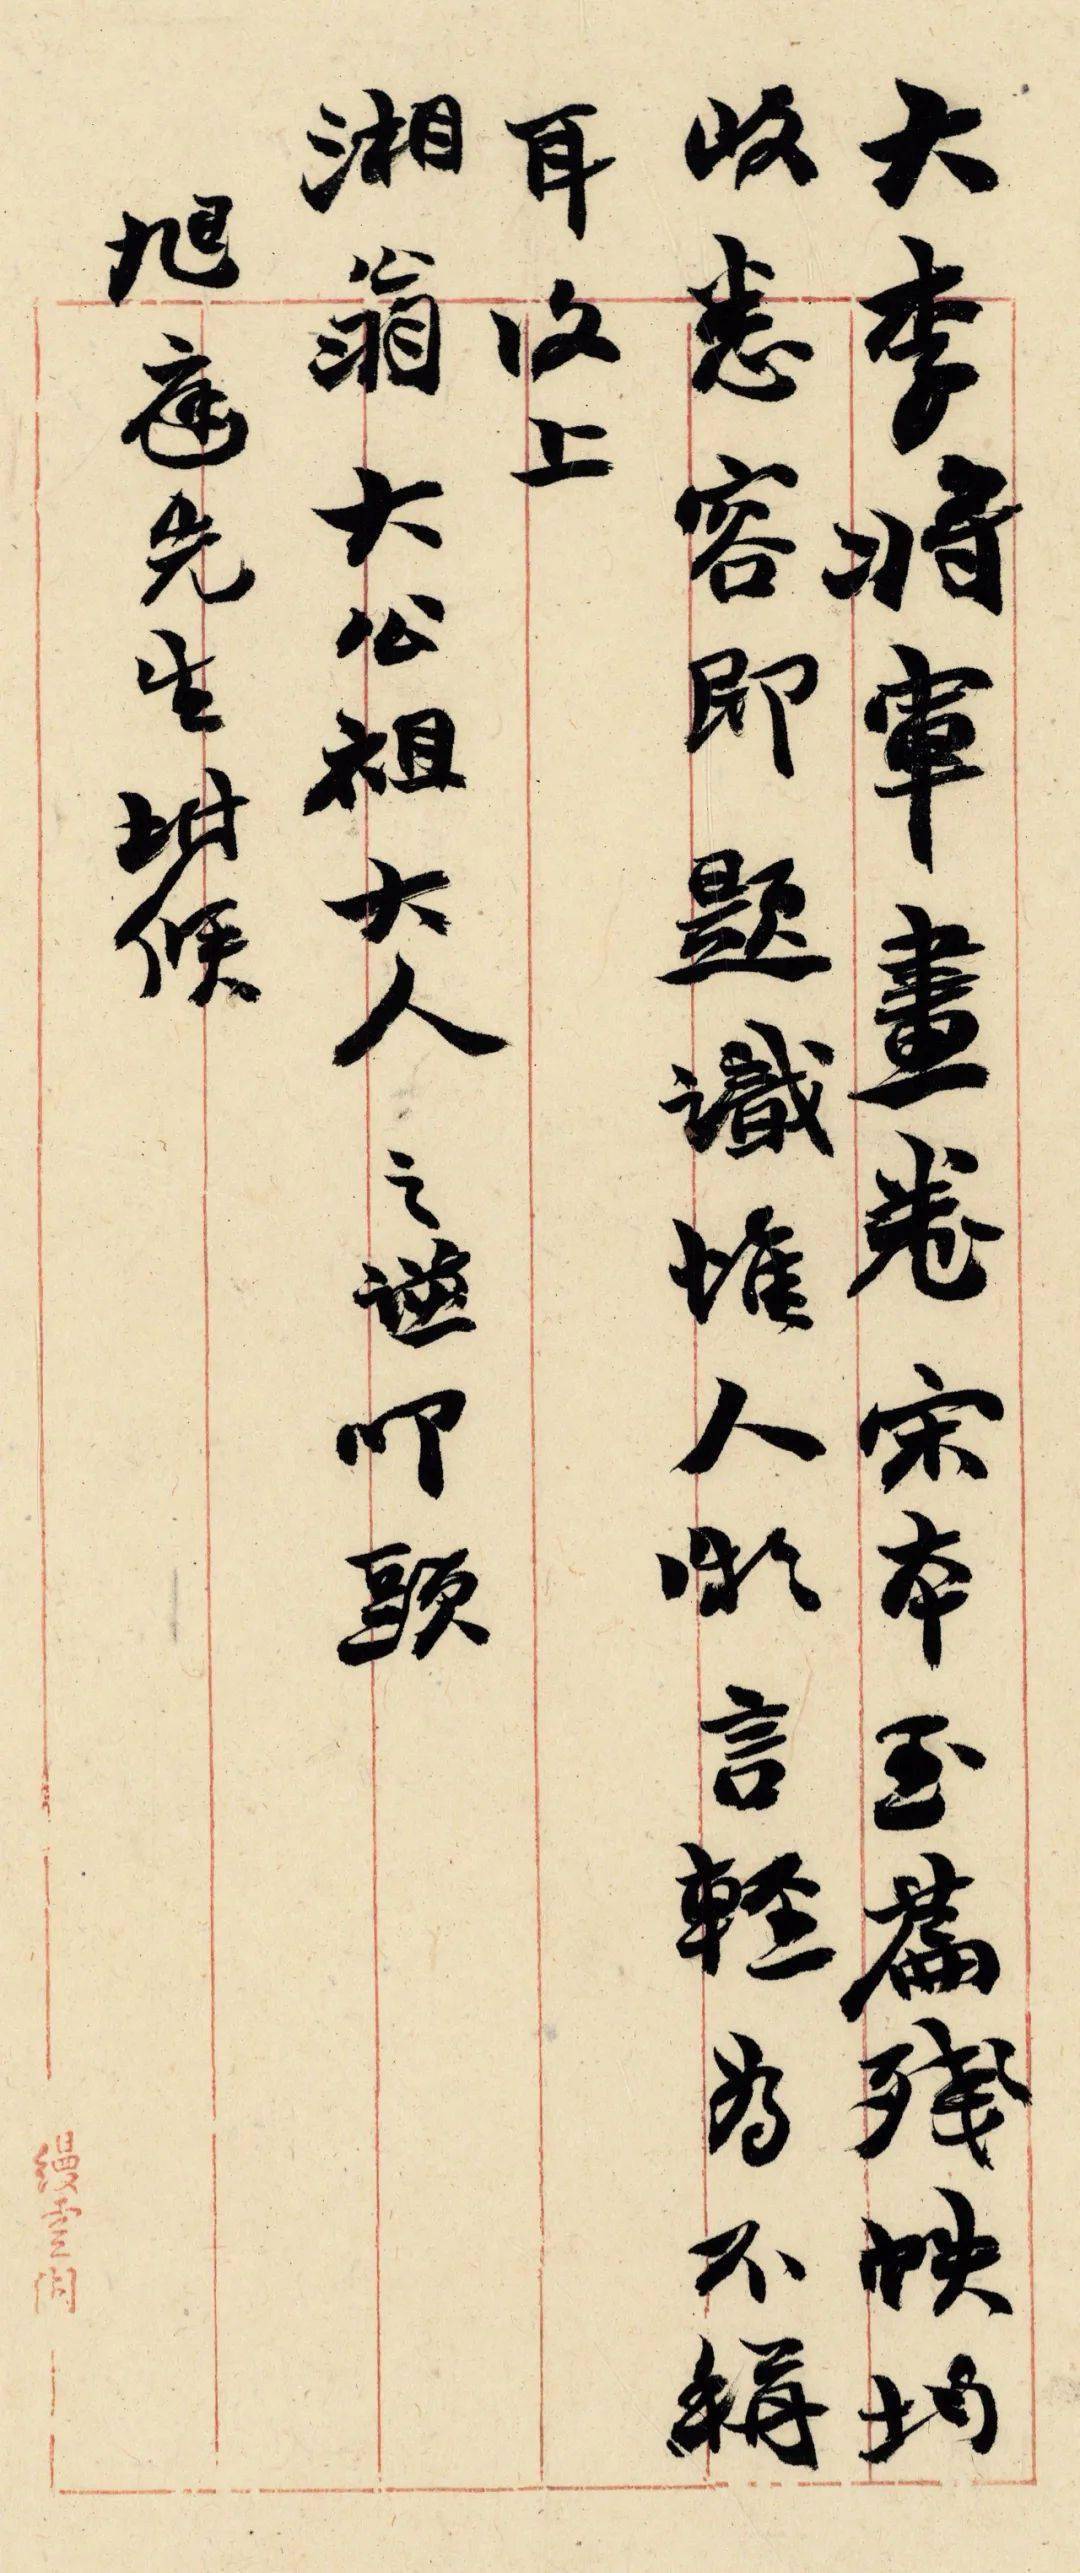 大李將軍畫卷宋本玉篇殘帙均
收悉容即題識惟人微言輕為不稱
耳復上
湘翁大公祖大人之謙叩頭
旭庭先生坿候
縵雲